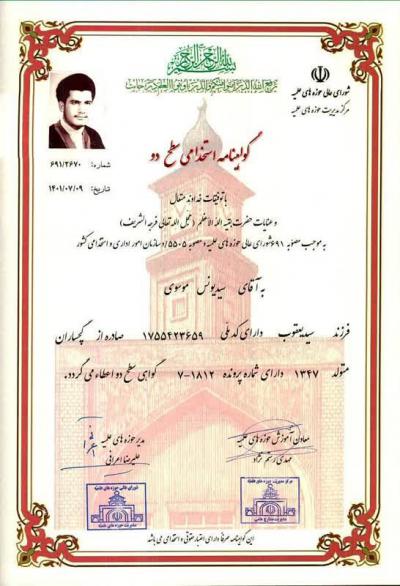 بسم الله الرحمن الرحیم
شورای عالی حوزه های علمیه
مرکز مدیریت حوزه های علمیه
گواهینامه استخدامی سطح دو
شماره: ۶۹۱/۲۶۷۰
تاریخ: ۱۴۰۱/۰۷/۰۹
با توفیقات خداوند متعال
و عنایات حضرت بقیه الله الاعظم (عجل الله تعالی فرجه الشریف)
به موجب مصوبه ۶۹۱ شورای عالی حوزه های علمیه و مصوبه ۵۵۰۵/د سازمان امور اداری و استخدامی کشور
به آقای سیدیونس موسوی
فرزند سیدیعقوب دارای کدملی ۱۷۵۵۴۲۳۶۵۹ صادره از گچساران
متولد ۱۳۴۷ دارای شماره پرونده ۱۸۱۲-۷ گواهی سطح دو اعطاء می گردد.
معاون آموزش حوزه های علمیه
مهدی رستم نژاد
مدیر حوزه های علمیه
علیرضا اعرافی
مرکز مدیریت حوزه های علمیه
شورای عالی حوزه های علمیه
مدیریت حوزه های علمیه
این گواهینامه صرفاً دارای اعتبار حقوقی و استخدامی می باشد